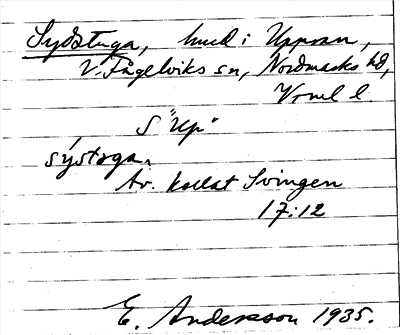 Sydstuga, hmd i Uppran,
V. Fågelviks sn, Nordmarks hd,
Vrml l.
S "Up"
sýstoga.
Av. kallat Svingen
17:12
E. Andersson 1935.